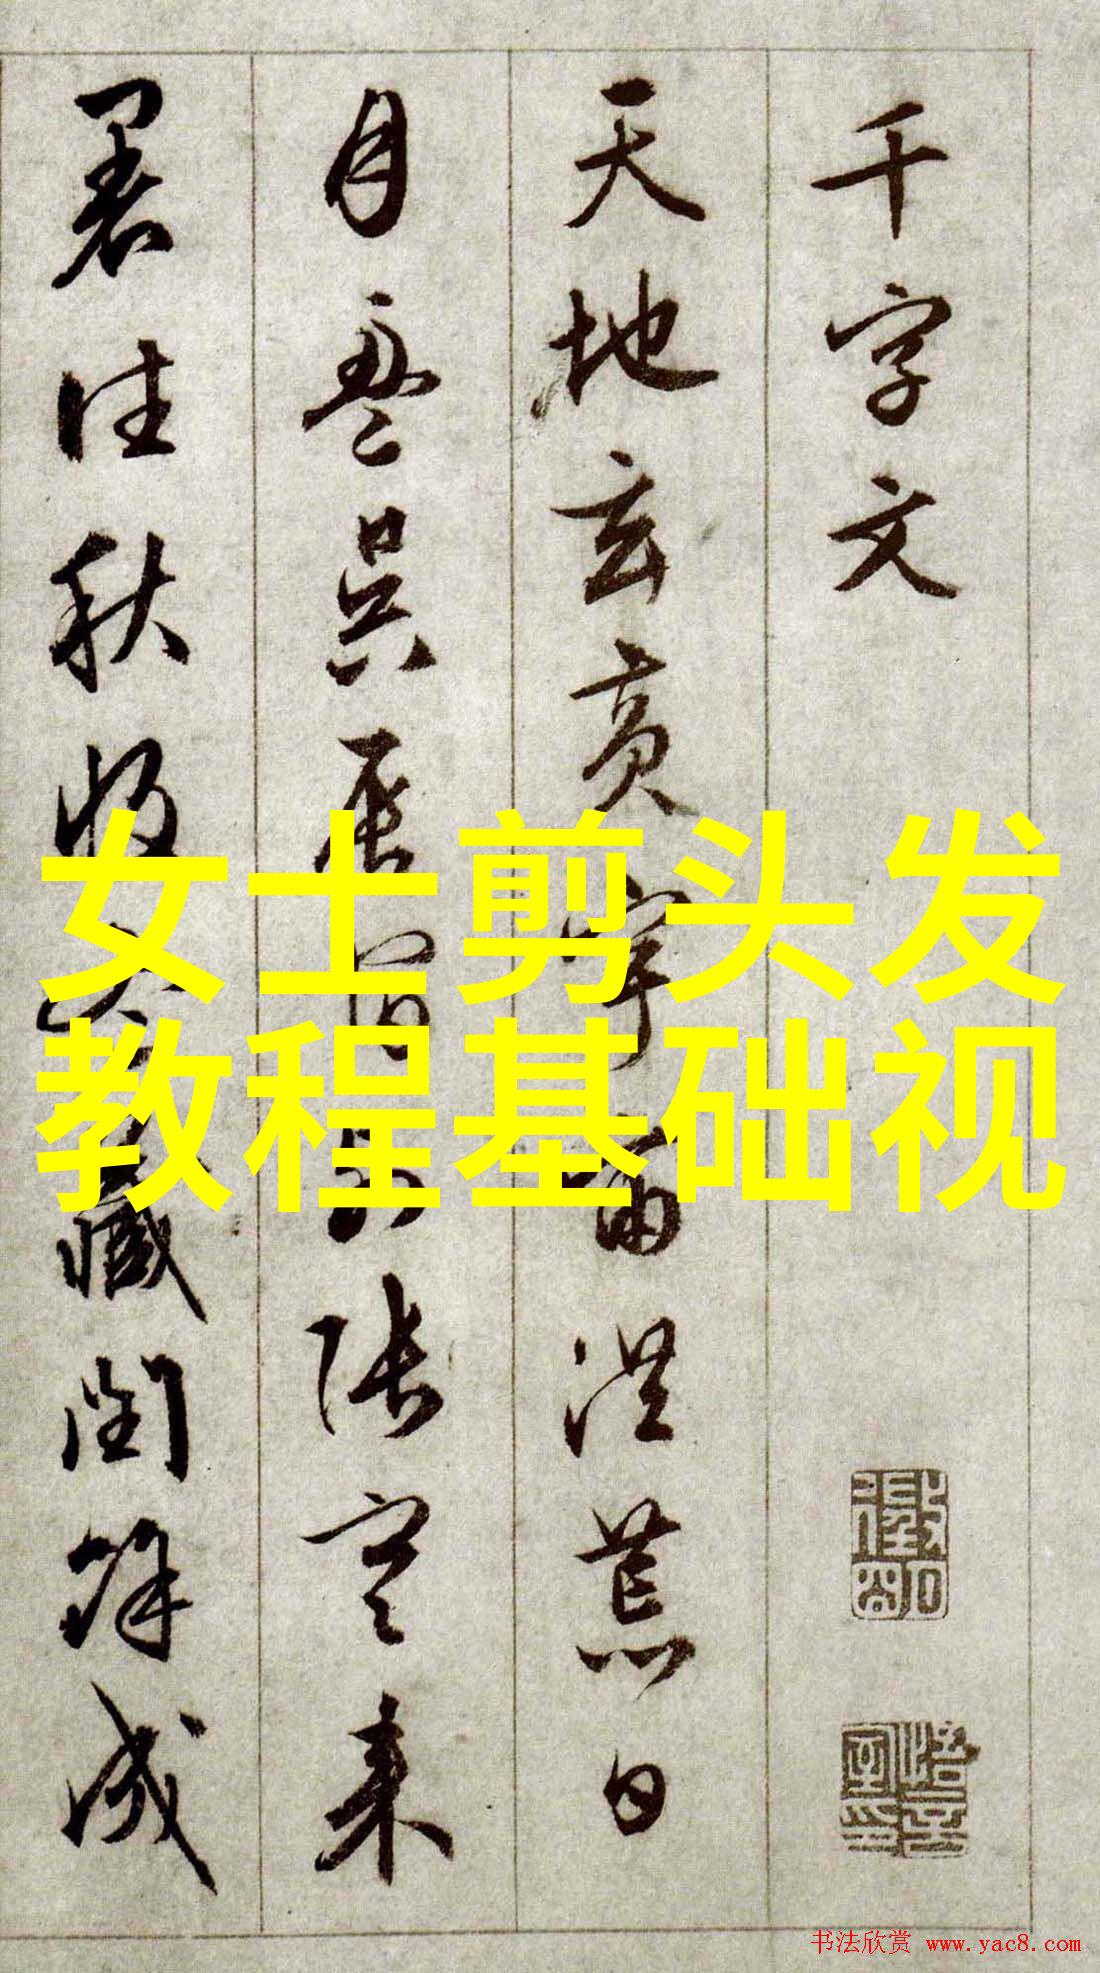 千字文
天地玄黄宇宙洪荒日
月盈昃辰宿列张寒来
暑往秋收冬藏闰余成
女士剪头发
教程基础视
书法欣赏 www.yac8.com